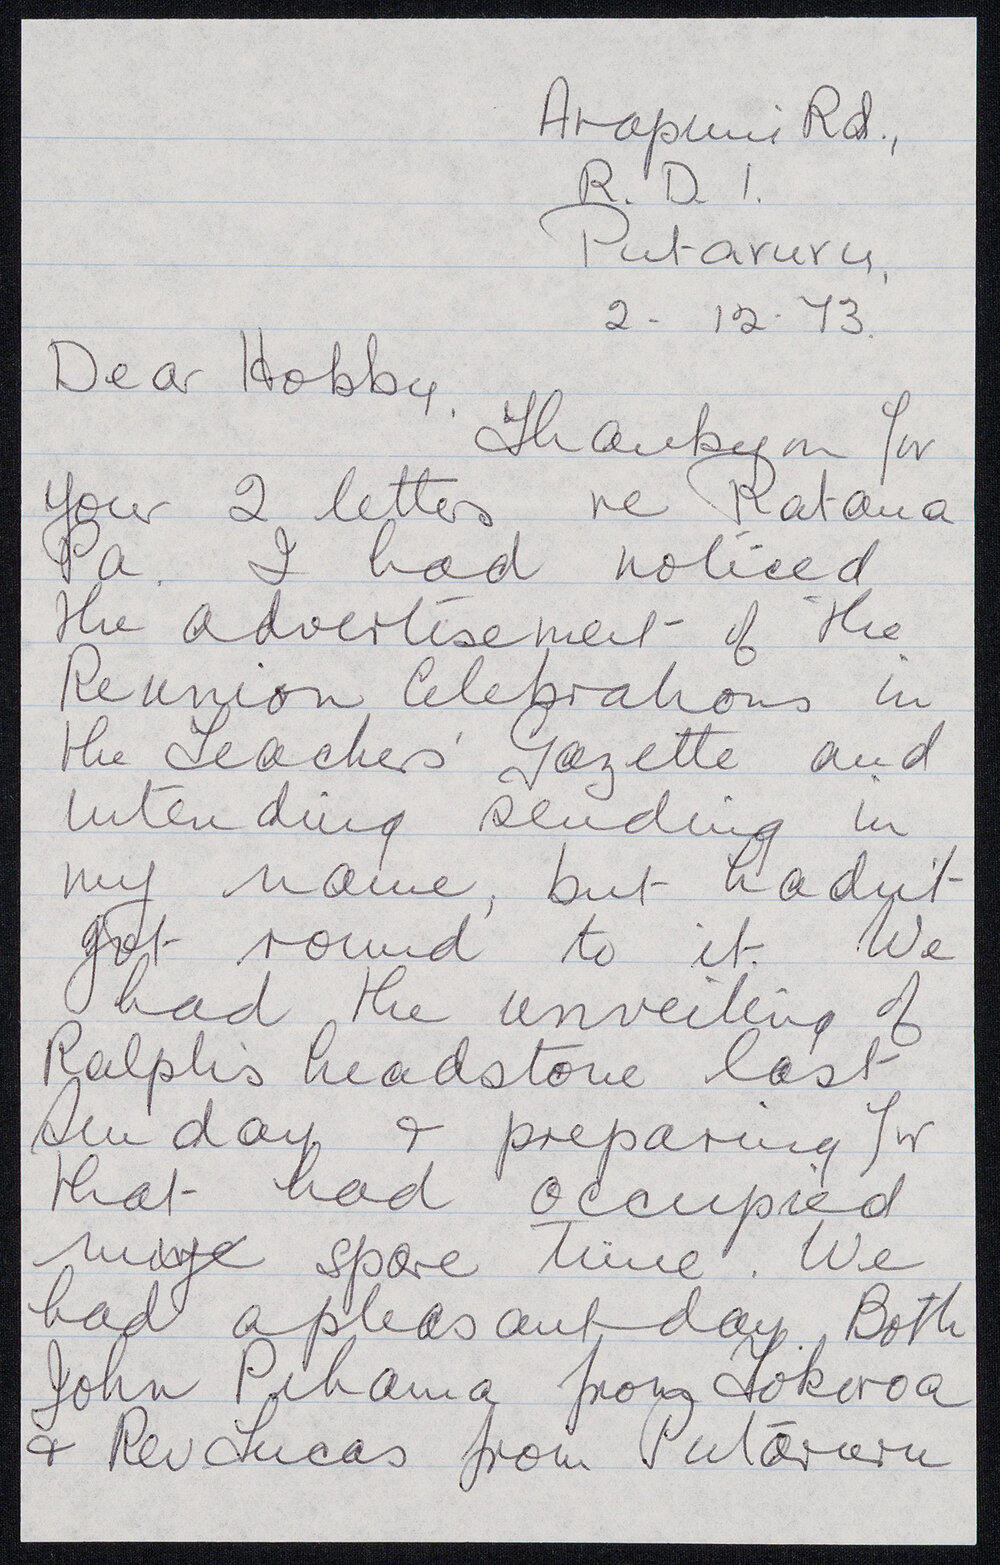 Arapuni Rd.,
R. D. 1.
Putaruru,
2 - 12 - 73.
Dear Hobby,
Thankyou for
your 2 letters re Ratana
Pa. I had noticed
the advertisement of the
Reunion Celebrations in
the Teachers' Gazette and
intending sending in
my name, but hadn't
got round to it. We
had the unveiling of
Ralph's headstone last
Sunday & preparing for
that had occupied
my spare time. We
had a pleasant day. Both
John Pihama from Tokoroa
& Rev Lucas from Putāruru